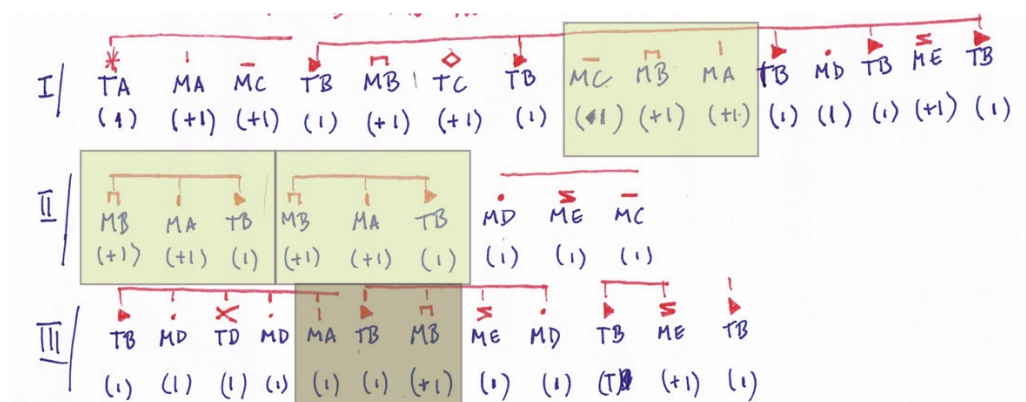 I/ TA MA MC TB MB TC TB MC MB MA TB MD TB ME TB
(1) (+1) (+1) (1) (+1) (+1) (1) (+1) (+1) (+1) (1) (1) (1) (+1) (1)
II/ MB MA TB MB MA TB MD ME MC
(+1) (+1) (1) (+1) (+1) (1) (1) (1) (1)
III/ TB MD TD MD MA TB MB ME MD TB ME TB
(1) (1) (1) (1) (1) (1) (+1) (1) (1) (+1) (1)